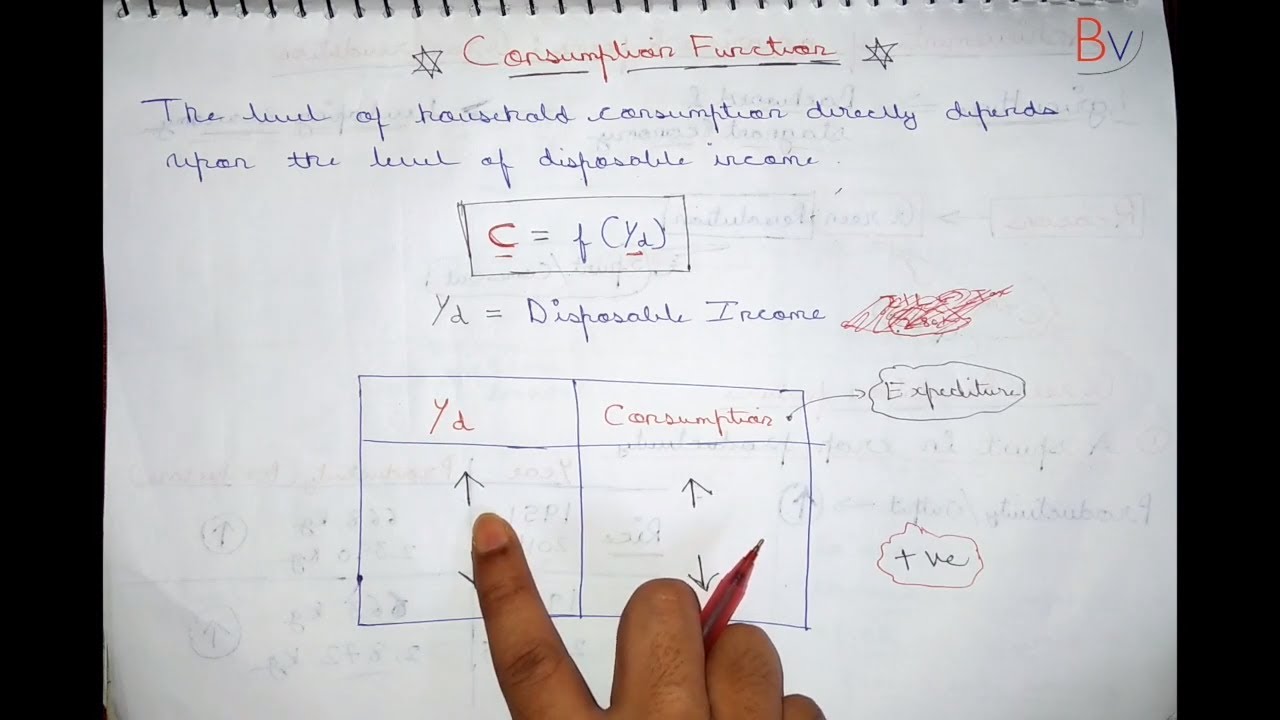 ☆ Consumption Function ☆
BV
The level of household consumption directly depends
upon the level of disposable income.
C = f (Yd)
Yd = Disposable Income
Yd Consumption → Expediture
↑ ↑
↓ ↓
+ve